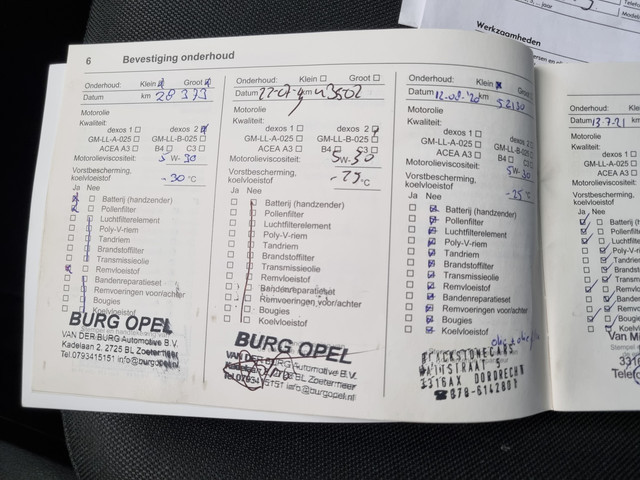 6 Bevestiging onderhoud
Onderhoud: Klein Groot
Datum km 28 373
Motorolie
Kwaliteit:
dexos 1 dexos 2
GM-LL-A-025 GM-LL-B-025
ACEA A3 B4 C3
Motorolieviscositeit: 5 W- 30
Vorstbescherming,
koelvloeistof -30 °C
Ja Nee
Batterij (handzender)
Pollenfilter
Luchtfilterelement
Poly-V-riem
Tandriem
Brandstoffilter
Transmissieolie
Remvloeistof
Bandenreparatieset
Remvoeringen voor/achter
Bougies
Koelvloeistof
BURG OPEL
VAN DER BURG Automotive B.V.
Kadelaan 2, 2725 BL Zoetermeer
Tel.0793415151 info@burgopel.nl
Onderhoud: Klein Groot
Datum km
Motorolie
Kwaliteit:
dexos 1 dexos 2
GM-LL-A-025 GM-LL-B-025
ACEA A3 B4 C3
Motorolieviscositeit: 5W-30
Vorstbescherming,
koelvloeistof -25 °C
Ja Nee
Batterij (handzender)
Pollenfilter
Luchtfilterelement
Poly-V-riem
Tandriem
Brandstoffilter
Transmissieolie
Remvloeistof
Bandenreparatieset
Remvoeringen voor/achter
Bougies
Koelvloeistof
BURG OPEL
VAN DER BURG Automotive B.V.
Kadelaan 2, 2725 BL Zoetermeer
Tel.0793415151 info@burgopel.nl
Onderhoud: Klein Groot
Datum 12-08-'20 km 52130
Motorolie
Kwaliteit:
dexos 1 dexos 2
GM-LL-A-025 GM-LL-B-025
ACEA A3 B4 C3
Motorolieviscositeit:
5W-30
Vorstbescherming,
koelvloeistof -25 °C
Ja Nee
Batterij (handzender)
Pollenfilter
Luchtfilterelement
Poly-V-riem
Tandriem
Brandstoffilter
Transmissieolie
Remvloeistof
Bandenreparatieset
Remvoeringen voor/achter
Bougies
Koelvloeistof
3316AX DORDRECH
078-6142801
Werkzaamheden
Onderhoud:
Datum 13.7.21 km
Motorolie
Kwaliteit:
GM-LL-A-025
ACEA A3
Motorolieviscositeit
Vorstbescherming,
koelvloeistof
Ja Nee
Batterij
Pollenf
Luchtf
Poly-V
Tandr
Brand
Trans
Remv
Band
Remvo
Bougie
Koelv
Van M
331
Telef